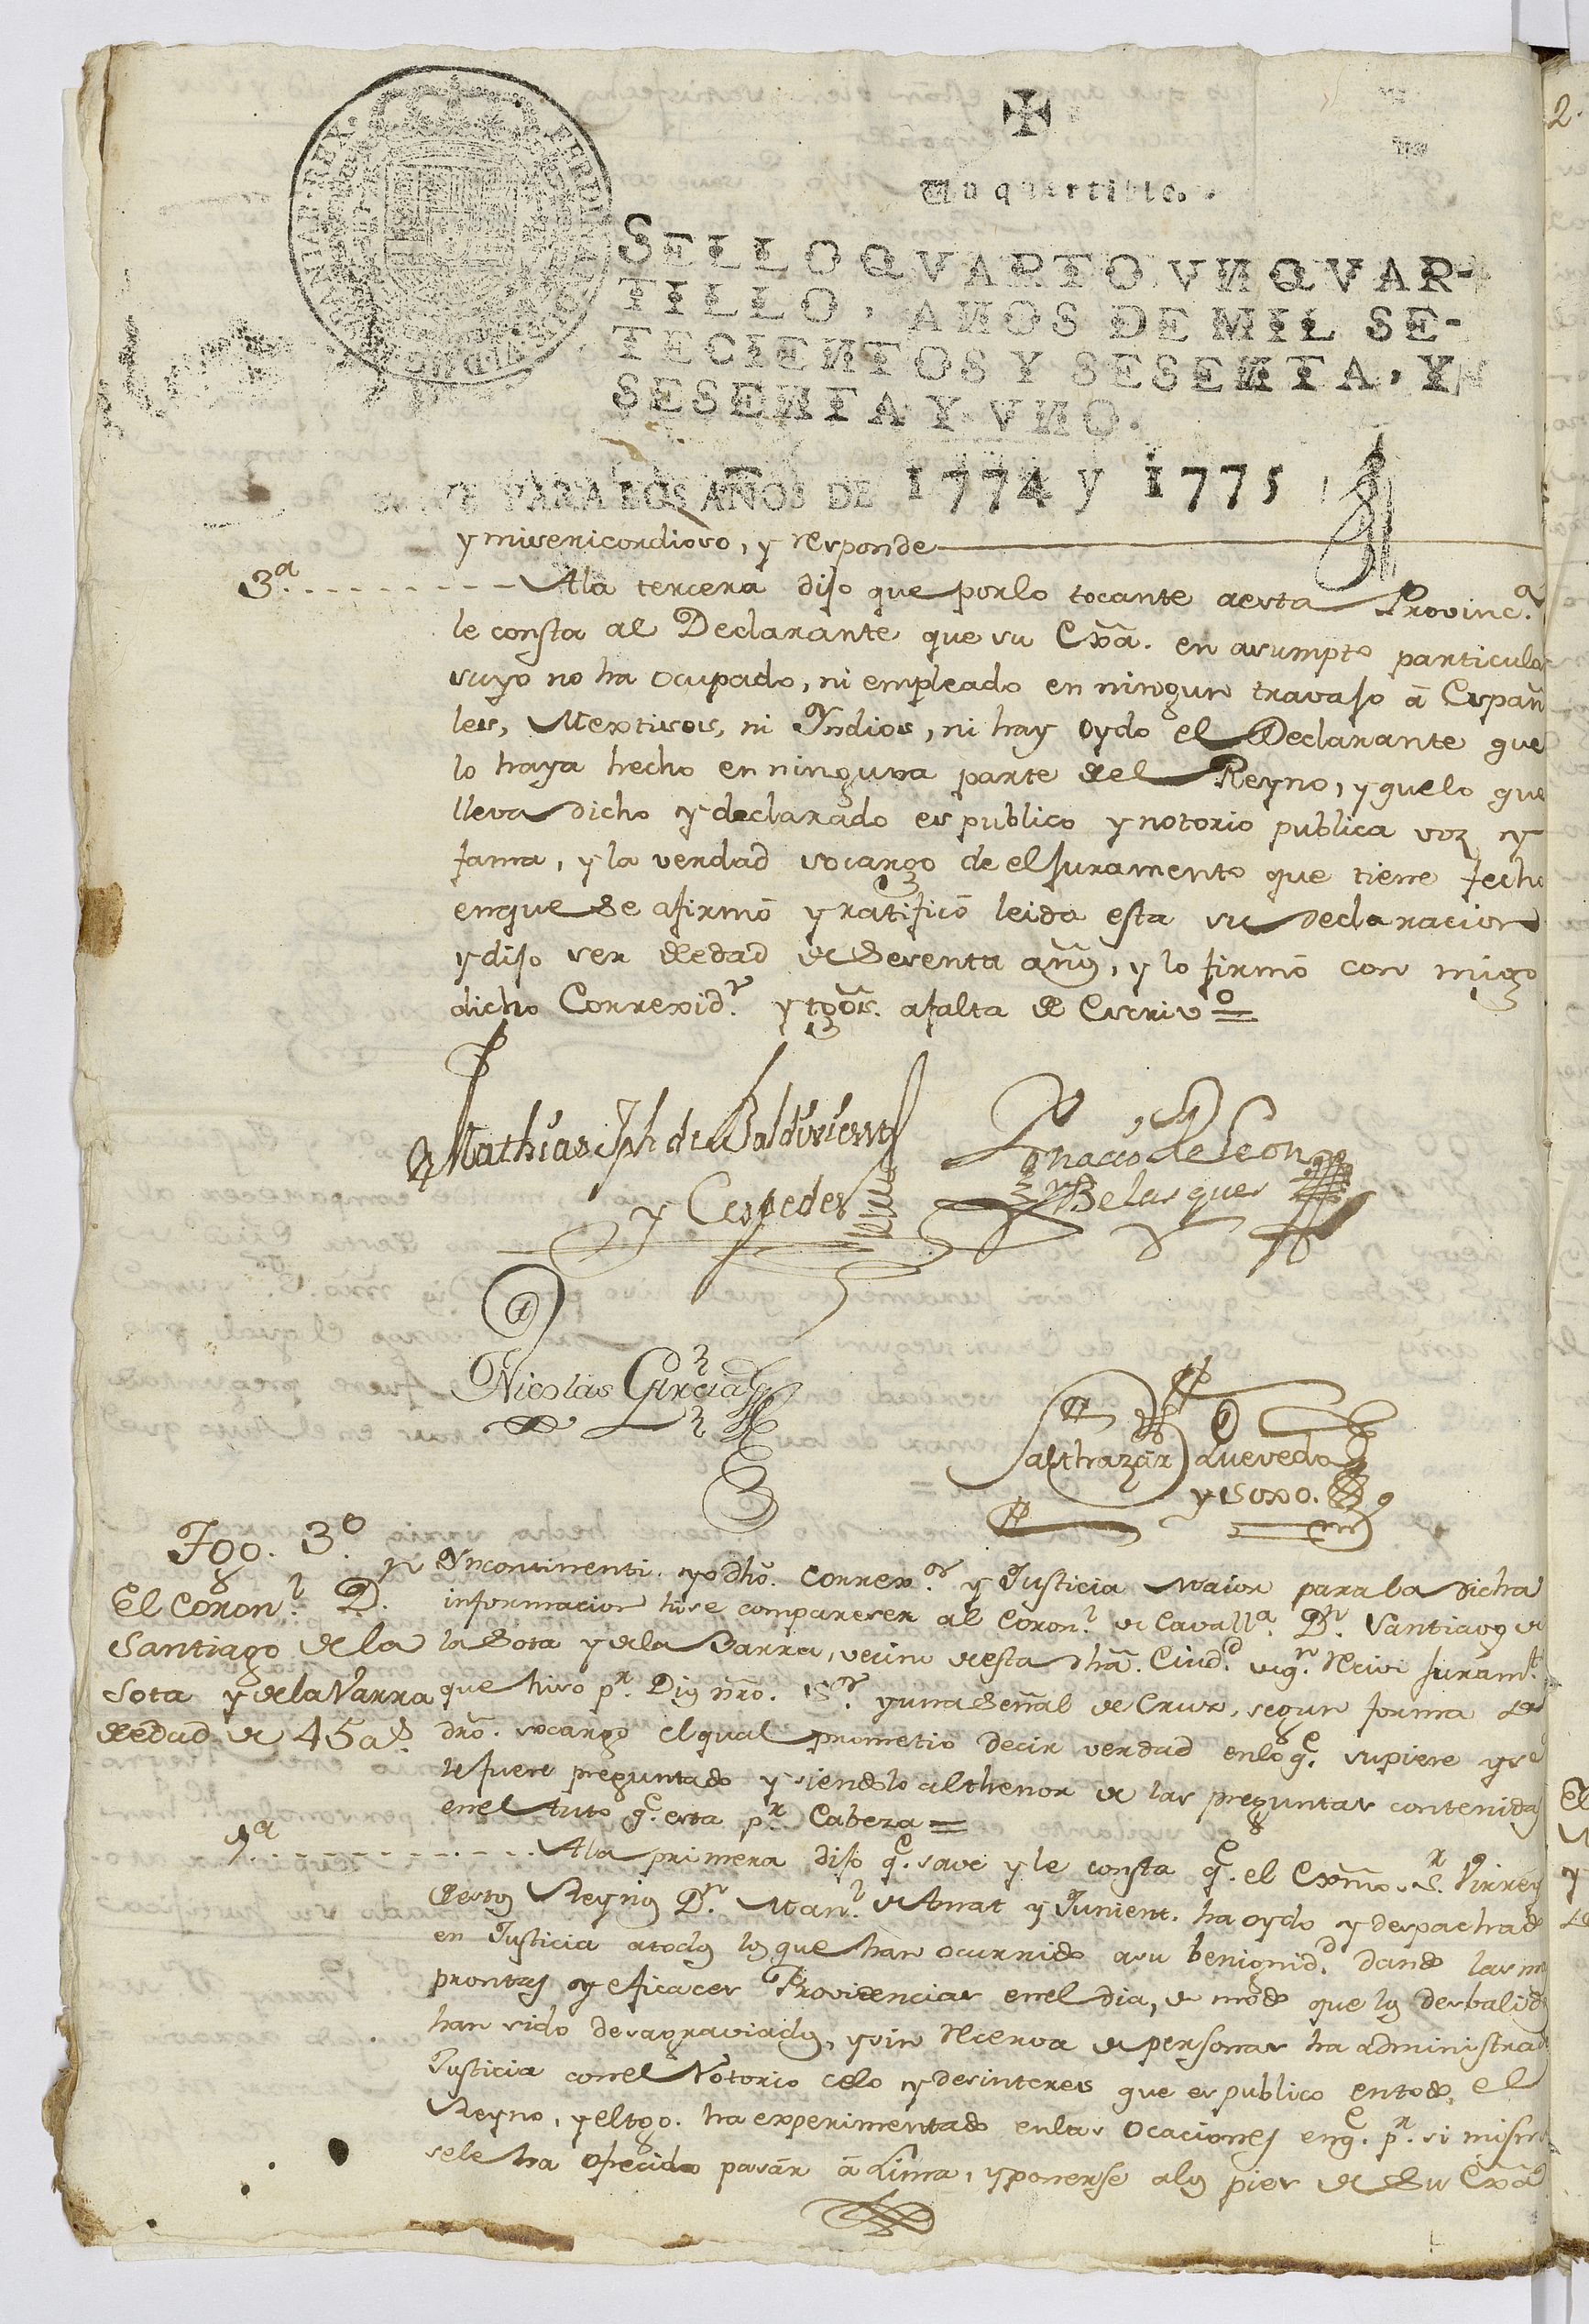 Un quartillo.
SELLO QVARTO, VN QVAR-
TILLO, AÑOS DE MIL SE-
TECIENTOS Y SESENTA, Y
SESENTA Y VNO.
PARA LOS AÑOS DE 1774 y 1775
y misericordioso, y responde
3.ª Ala tercera dijo que porlo tocante aesta Provinc.ª
le consta al Declarante que su Exã. en asumpto particular
suyo no ha ocupado, ni empleado en ningun travajo â Españ
les, Mextisos, ni Yndios, ni hay oydo el Declarante que
lo haya hecho en ninguna parte del Reyno, y quelo que
lleva dicho y declarado es publico y notorio publica voz y
fama, y la verdad socargo de el Juramento que tiene fecho
enque se afirmó y ratificó leida esta su declaracion
y dijo ser de edad de sesenta añõs, y lo firmó con migo
dicho Correxid.r y tgõs. afalta de Escriv.º =
Mathias Jph de Baldivieso
y Cespedes
Ygnacio de Leon
y Belasques
Nicolas Garcia
Balthazar Quevedo
y Soxo.
Tgo. 3.º
El Coron.l D.n
Santiago de la
Sota y de la Varra
de edad de 45 a.s
Yncontinenti. yo dhõ. Correx.or y Justicia maior para la dicha
informacion hise compareser al Coron.l de Cavall.ª D.n Santiago de
la Sota y de la Varra, vecino de esta dhã. Ciud.d de q.n recivi juram.to
que hiso p.r Dios nrõ. S.r y una Señal de Crus, segun forma de
drõ. socargo el qual prometio decir verdad enlo q.e supiere y se
le fuere preguntado y siendolo al thenor de las preguntas contenidas
enel auto q.e esta p.r Cabeza =
1.ª Ala primera dijo q.e save y le consta q.e el Exmõ. S.r Virrey
de estos Reynos D.n Man.l de Amat y Junient. ha oydo y despachado
en Justicia atodos los que han ocurrido asu benignid.d dando las m
prontas y eficaces Providencias enel dia, de modo que los desbalid
han sido desagraviados, y sin recerva de personas ha administrad
Justicia conel Notorio celo y desinteres que es publico entodo, el
Reyno, y eltgo. ha experimentado enlas Ocaciones enq.e p.r si mismo
sele ha ofrecido pasár â Lima, y ponerse alos pies de su Exã